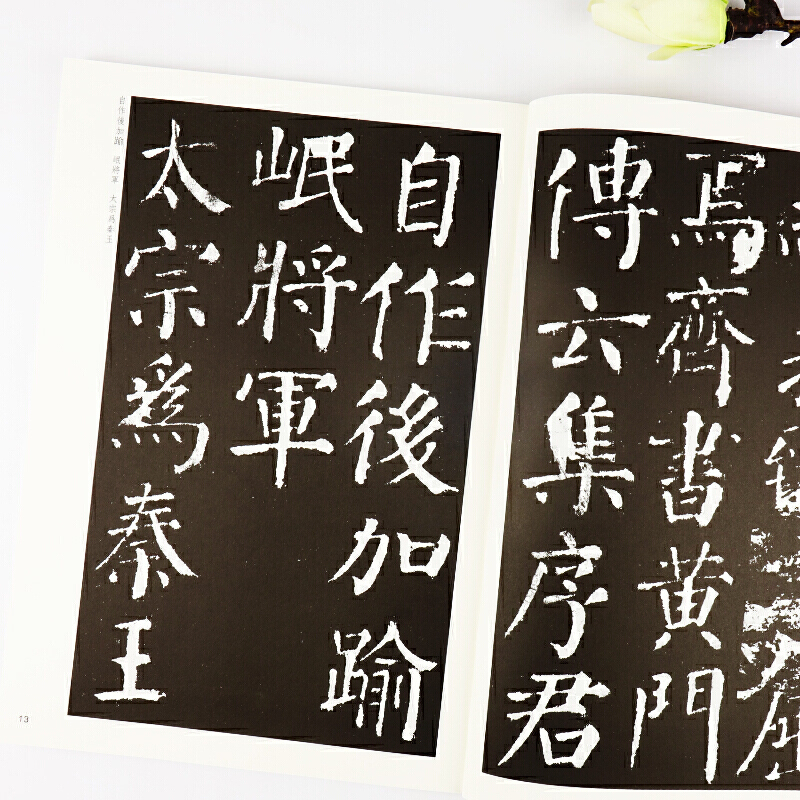 焉齊書黃門
傳云集序君
自作後加踰
岷將軍
太宗爲秦王
自作後加踰 岷將軍 太宗爲秦王
13